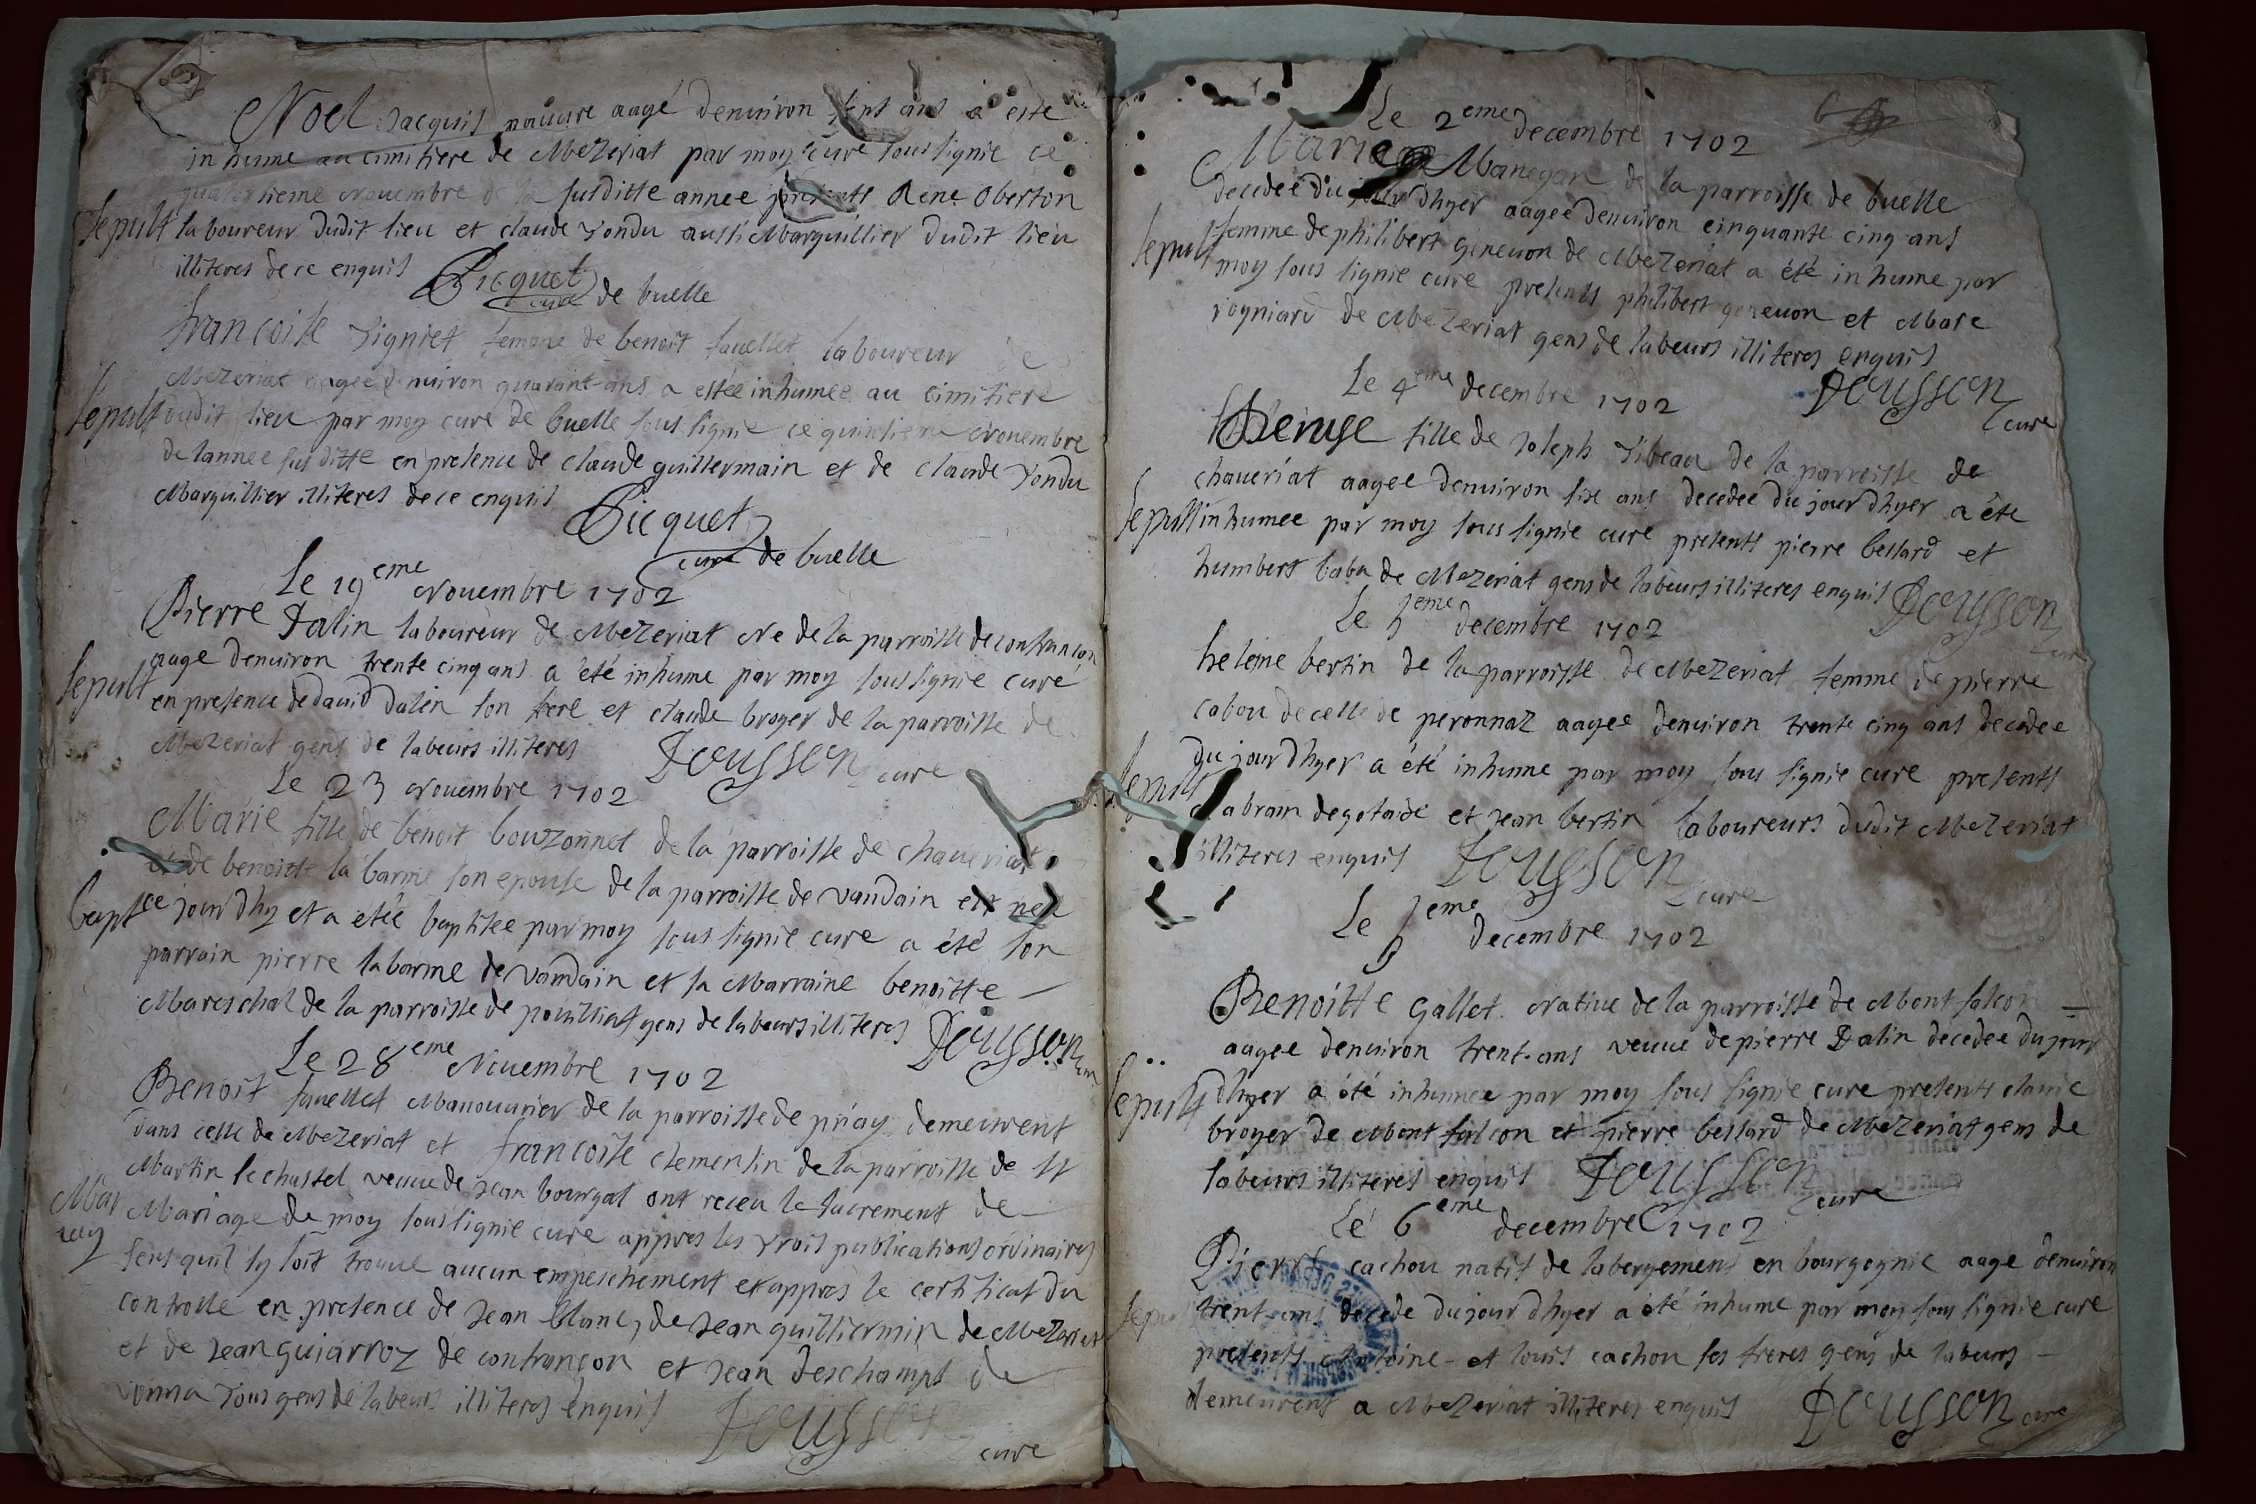 Noel Jacquis pauure aagé denuiron sept ans a esté
inhume au cimitiere de Mezeriat par moy cure soussignie ce
quatorsieme Nouembre de la susditte annee presents Rene Oberton
Sepult laboureur dudit lieu et claude Yondu aussi Marguillier dudit lieu
illiteres de ce enquis Picquet
cure de buelle
francoise Signiet femme de benoit fauellet laboureur de
Mezeriat aagee denuiron quarant ans a estée inhumee au cimitiere
Sepult dudit lieu par moy cure de buelle soussignie ce quinsieme Nouembre
de lannee susditte en presence de claude guillermain et de claude Yondu
Marguillier illiteres de ce enquis Picquet
cure de buelle
Le 19eme Nouembre 1702
Pierre Dalin laboureur de Mezeriat Ne de la parroisse de confrancon
Sepult aage denuiron trente cinq ans a été inhume par moy soussignie cure
en presence de dauid dalin son frere et claude broyer de la parroisse de
Mezeriat gens de labeurs illiteres Dousson cure
Le 23 Nouembre 1702
Marie fille de benoit bouzonnet de la parroisse de chaueriat
et de benoitte la barme son epouse de la parroisse de vandain est nee
bapt ce jourdhy et a étée baptisee par moy sous signie cure a été son
parrain pierre labarme de vandain et sa Marraine benoitte
Mareschal de la parroisse de pouilliat gens de labeurs illiteres Dousson cure
Le 28eme Nouembre 1702
Benoist fauellet Manouurier de la parroisse de priay demeurent
dans celle de Mezeriat et francoise clementin de la parroisse de st
Martin le chastel veuue de Jean bourgat ont receu le sacrement de
Mar Mariage de moy soussignie cure appres les trois publications ordinaires
sens quil sy soit trouue aucun empeschement et appres le certificat du
controlle en presence de Jean blanc, de Jean guilliermin de Mezeriat
et de Jean guiarroz de confrançon et Jean deschamps de
vonna tous gens de labeurs illiteres enquis Dousson
cure
Le 2eme decembre 1702
Marie Manegan de la parroisse de buelle
decedée du jour dhyer aagée denuiron cinquante cinq ans
Sepult femme de philibert geneuon de Mezeriat a été inhume par
moy sous signie cure presents philibert geneuon et Marc
rogniard de Mezeriat gens de labeurs illiteres enquis
Dousson cure
Le 4eme decembre 1702
Denise fille de Joseph Tibeau de la parroisse de
chaueriat aagee denuiron six ans decedee du jour dhyer a éte
Sepult inhumee par moy sous signie cure presents pierre bellard et
humbert babu de Mezeriat gens de labeurs illiteres enquis Dousson
Le 5eme decembre 1702
heleine bertin de la parroisse de Mezeriat femme de pierre
cabou de celle de peronnaz aagee denuiron trente cinq ans decedee
Sepult du jour dhyer a été inhume par moy sous signie cure presents
abram degotaise et Jean bertin laboureurs dudit Mezeriat
illiteres enquis Dousson cure
Le 5eme decembre 1702
Benoitte Gallet Natiue de la parroisse de Montfalcon
aagee denuiron trent ans veuue de pierre Dalin decedee du jour
Sepult dhyer a été inhumee par moy sous signie cure presents claude
broyer de Mont falcon et pierre bellard de Mezeriat gens de
labeurs illiteres enquis Dousson cure
Le 6eme decembre 1702
Pierre cachou natif de labergement en bourgognie aage denuiron
Sepu trent ans decede du jour dhyer a été inhume par moy sous signie cure
presents Antoine et louis cachou ses freres gens de labeurs
demeurents a Mezeriat illiteres enquis Dousson cure